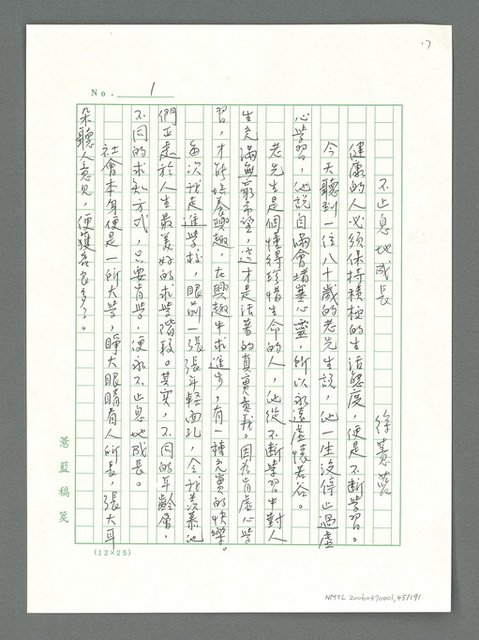 17
No. 1
不止息地成長
徐薏藍
健康的人必須保持積極的生活態度,便是不斷學習。
今天聽到一位八十歲的老先生說,他一生沒停止過虛
心學習,他說自滿會堵塞心靈,所以永遠虛懷若谷。
老先生是個懂得珍惜生命的人,他從不斷學習中對人
生充滿無窮希望,這才是活著的真實意義。因為肯虛心學
習,才能培養興趣,在興趣中求進步,有一種充實的快樂。
每次我走進學校,眼前一張張年輕面孔,令我羨慕他
們正處於人生最美好的求學階段。其實,不同的年齡層,
不同的求知方式,只要肯學,便永不止息地成長。
社會本身便是一所大學,睜大眼睛看人所長,張大耳
朵聽人意見,便獲益良多了。
薏藍稿箋
(12×25)
NMTL 20060390001,45/191